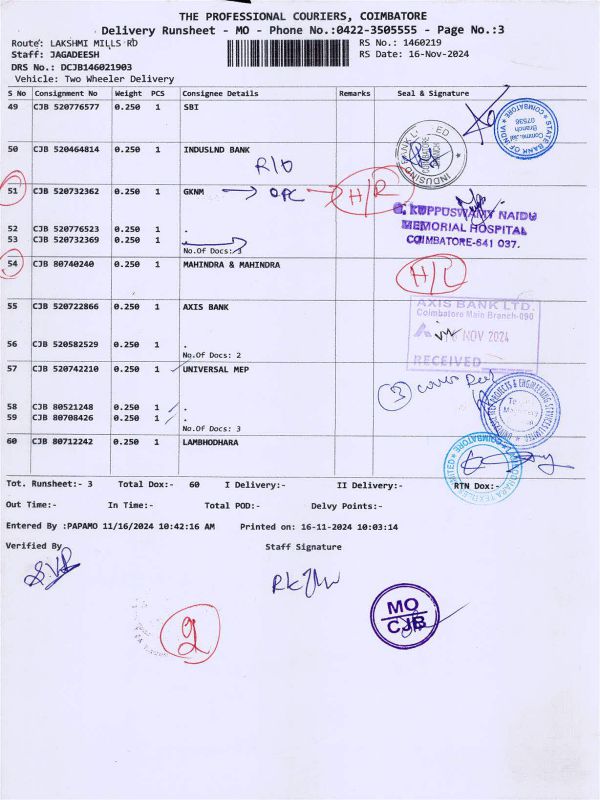 THE PROFESSIONAL COURIERS, COIMBATORE
Delivery Runsheet - MO - Phone No.:0422-3505555 - Page No.:3
Route: LAKSHMI MILLS RD
RS No.: 1460219
Staff: JAGADEESH
RS Date: 16-Nov-2024
DRS No.: DCJB146021903
Vehicle: Two Wheeler Delivery
S No Consignment No Weight PCS Consignee Details Remarks Seal & Signature
49 CJB 520776577 0.250 1 SBI
STATE BANK OF INDIA
Branch
07536
COIMBATORE
50 CJB 520464814 0.250 1 INDUSLND BANK
INDUSIND BANK L ED
COIMBATORE
BRANCH
51 CJB 520732362 0.250 1 GKNM
H/R
KUPPUSWAMY NAIDU
MEMORIAL HOSPITAL
COIMBATORE-641 037.
52 CJB 520776523 0.250 1 .
53 CJB 520732369 0.250 1 .
No.Of Docs: 3
54 CJB 80740240 0.250 1 MAHINDRA & MAHINDRA
55 CJB 520722866 0.250 1 AXIS BANK
AXIS BANK LTD.
Coimbatore Main Branch-090
NOV 2024
RECEIVED
56 CJB 520582529 0.250 1 .
No.Of Docs: 2
57 CJB 520742210 0.250 1 UNIVERSAL MEP
3
58 CJB 80521248 0.250 1 .
59 CJB 80708426 0.250 1 .
No.Of Docs: 3
UNIVERSAL MEP PROJECTS & ENGINEERING SERVICES LIMITED
60 CJB 80712242 0.250 1 LAMBHODHARA
COIMBATORE
Tot. Runsheet:- 3 Total Dox:- 60 I Delivery:- II Delivery:- RTN Dox:-
Out Time:- In Time:- Total POD:- Delvy Points:-
Entered By :PAPAMO 11/16/2024 10:42:16 AM Printed on: 16-11-2024 10:03:14
Verified By
Staff Signature
MO
CJB